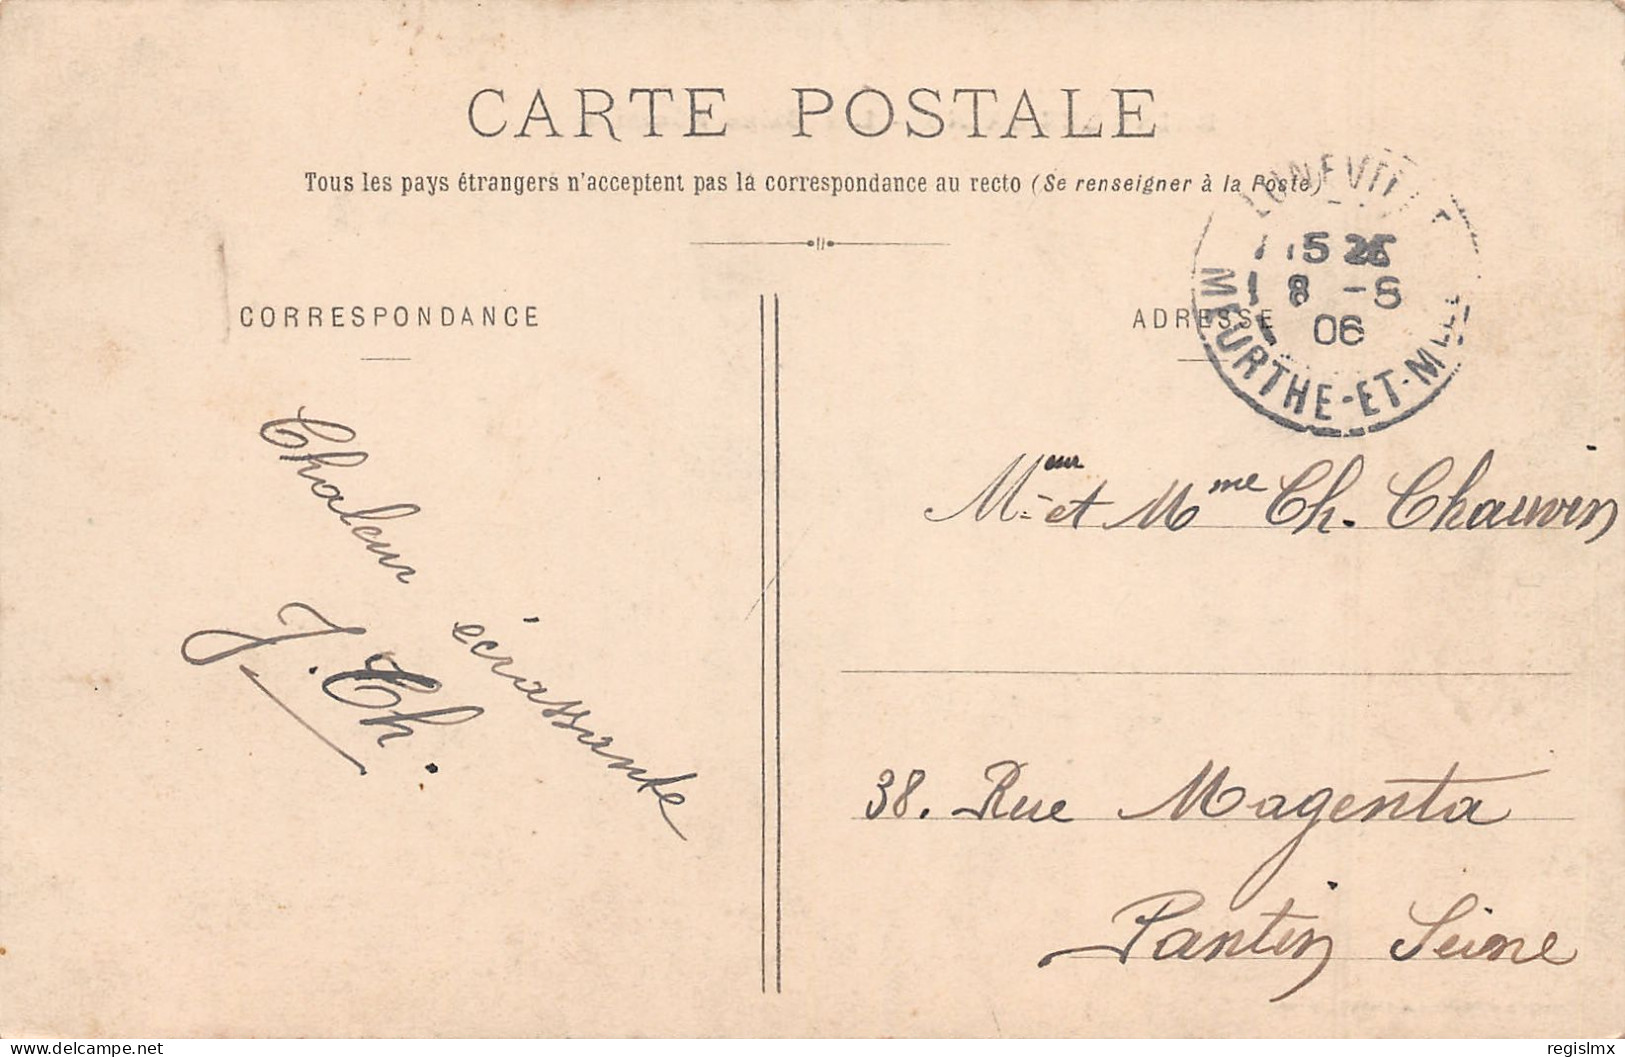 CARTE POSTALE
Tous les pays étrangers n'acceptent pas la correspondance au recto (Se renseigner à la Poste)
CORRESPONDANCE
ADRESSE
LUNEVILLE
15 25
8 -8
06
MEURTHE-ET-MLLE
Chaleur écrassante
J. Ch.
Meur et Mme Ch. Chauvin
38. Rue Magenta
Pantin Seine
www.delcampe.net
regislmx